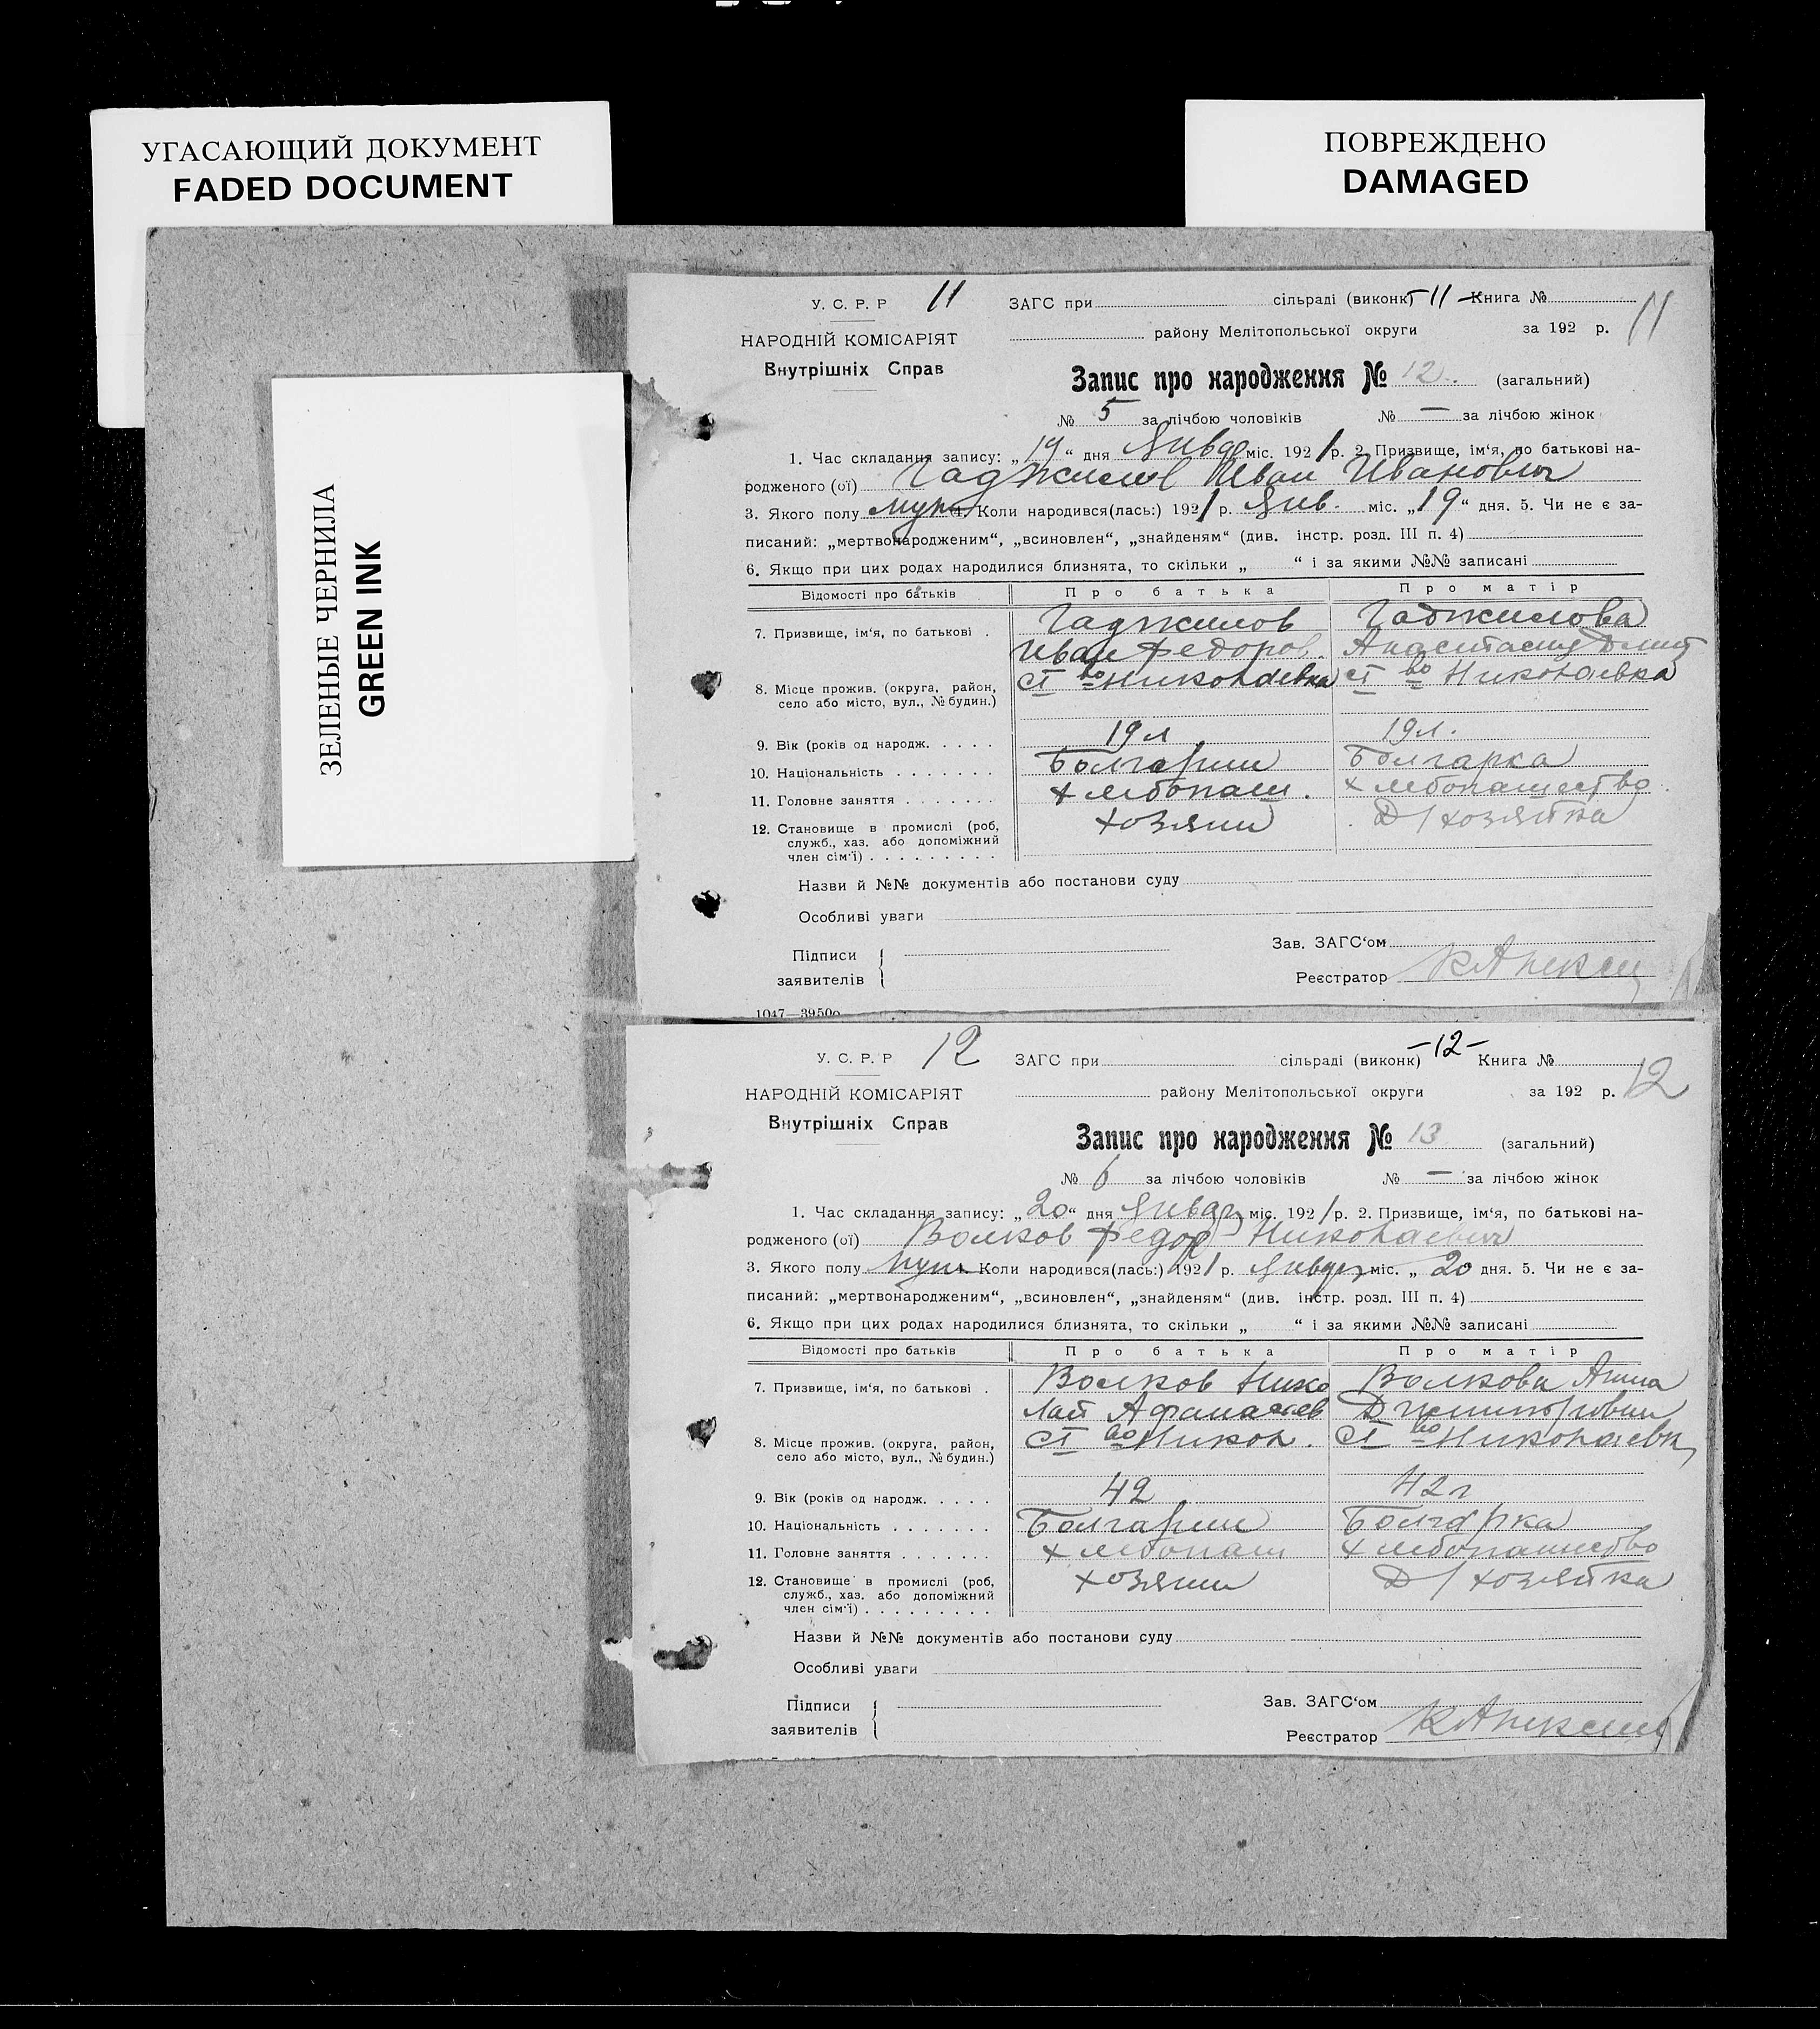 УГАСАЮЩИЙ ДОКУМЕНТ
FADED DOCUMENT
ПОВРЕЖДЕНО
DAMAGED
ЗЕЛЕНЫЕ ЧЕРНИЛА
GREEN INK
У. С. Р. Р 11 ЗАГС при сільраді (виконк) -11- Книга №
11
НАРОДНІЙ КОМІСАРІЯТ району Мелітопольської округи за 192 р.
Внутрішніх Справ
Запис про народження № 12. (загальний)
№ 5 за лічбою чоловіків № — за лічбою жінок
1. Час складання запису: „19“ дня Январ міс. 1921 р. 2. Призвище, ім‘я, по батькові на-
родженого (ої) Гаджилов Иван Иванович
3. Якого полу муж 4. Коли народився(лась:) 1921 р. Янв. міс. „19“ дня. 5. Чи не є за-
писаний: „мертвонародженим“, „всиновлен“, „знайденям“ (див. інстр. розд. III п. 4)
6. Якщо при цих родах народилися близнята, то скільки „ “ і за якими №№ записані
Відомості про батьків Про батька Про матір
7. Призвище, ім‘я, по батькові . Гаджилов Гаджилова
Иван Федоров. Анастасия Дмит
8. Місце прожив. (округа, район, ст во Николаевка ст во Николаевка
село або місто, вул., № будин.)
9. Вік (років од народж. . . . . 19 л 19 л.
10. Національність . . . . . . . Болгарин Болгарка
11. Головне заняття . . . . . . . Хлебопаш. Хлебопашество
12. Становище в промислі (роб, хозяин Д/хозяйка
служб., хаз. або допоміжний
член сім‘ї) . . . . . . . . .
Назви й №№ документів або постанови суду
Особливі уваги
Підписи Зав. ЗАГС‘ом
заявителів Реєстратор
1047—39500
У. С. Р. Р 12 ЗАГС при сільраді (виконк) -12- Книга №
12
НАРОДНІЙ КОМІСАРІЯТ району Мелітопольської округи за 192 р.
Внутрішніх Справ
Запис про народження № 13 (загальний)
№ 6 за лічбою чоловіків № — за лічбою жінок
1. Час складання запису: „20“ дня Январ міс. 1921 р. 2. Призвище, ім‘я, по батькові на-
родженого (ої) Волков Федор Николаевич
3. Якого полу муж 4. Коли народився(лась:) 1921 р. Январ міс. „20 дня. 5. Чи не є за-
писаний: „мертвонародженим“, „всиновлен“, „знайденям“ (див. інстр. розд. III п. 4)
6. Якщо при цих родах народилися близнята, то скільки „ “ і за якими №№ записані
Відомості про батьків Про батька Про матір
7. Призвище, ім‘я, по батькові . Волков Нико Волкова Анна
лай Афанасиев
8. Місце прожив. (округа, район, ст во Никол. ст во Николаевк
село або місто, вул., № будин.)
9. Вік (років од народж. . . . . 42 42 г
10. Національність . . . . . . . Болгарин Болгарка
11. Головне заняття . . . . . . . Хлебопаш Хлебопашество
12. Становище в промислі (роб, хозяин Д/хозяйка
служб., хаз. або допоміжний
член сім‘ї) . . . . . . . . .
Назви й №№ документів або постанови суду
Особливі уваги
Підписи Зав. ЗАГС‘ом
заявителів Реєстратор